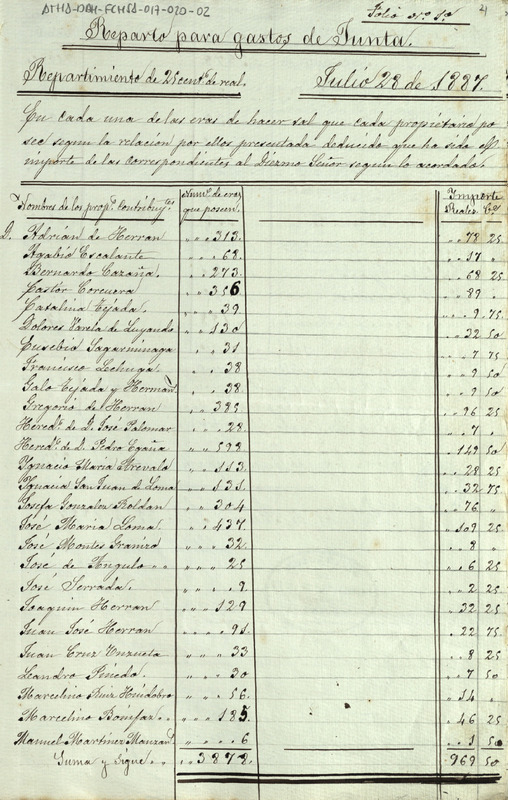 ATHA-DAH-FCHSA-017-020-02
Folio Nº 1º
Reparto para gastos de Junta.
Repartimiento de 25 centˢ de real. Julio 28 de 1887.
En cada una de las eras de hacer sal que cada propietario po
see segun la relacion por ellos presentada deducido que ha sido el
importe de las correspondientes al Diezmo Señor segun lo acordado.
Nombres de los propˢ Contribuyᵗᵉˢ Numº de eras que poseen. Importe Reales Cˢ
D. Adrián de Herran " " 313. " " 78 25
Agabio Escalante " " 68. " " 17 "
Bernardo Cazaña. " " 273. " " 68 25
Castor Corcuera " " 356 " " 89 "
Catalina Tejada. " " 39 " " 9 75
Dolores Varela de Luyando " " 130 " " 32 50
Eusebio Sagarminaga " " 31 " " 7 75
Francisco Lechuga. " " 38 " " 9 50
Galo Tejada y Hermanº " " 38 " " 9 50
Gregorio de Herran " " 385 " " 96 25
Heredˢ de D. José Palomar " " 28 " " 7 "
Heredˢ de D. Pedro Egaña " " 598 " 149 50
Ygnacio Maria Arevalo " " 113 " " 28 25
Ygnacia San Juan de Loma " " 131 " " 32 75
Josefa Gonzalez Roldan " " 304 " " 76 "
José Maria Loma " " 437 " 109 25
José Montes Granizo " " 32 " " 8 "
José de Angulo " " " " 25 " " 6 25
José Serrada. " " 9 " " 2 25
Joaquin Herran " " 129 " " 32 25
Juan José Herran " " 91 " " 22 75
Juan Cruz Unzueta " " 33 " " 8 25
Leandro Pinedo. " " 30 " " 7 50
Marcelino Ruiz Huidobro " " 56 " " 14 "
Marcelino Bonifaz. " " " " 185. " " 46 25
Manuel Martinez Manzanˢ " " 6 " " 1 50
Suma y sigue " " " " 3.878. 969 50